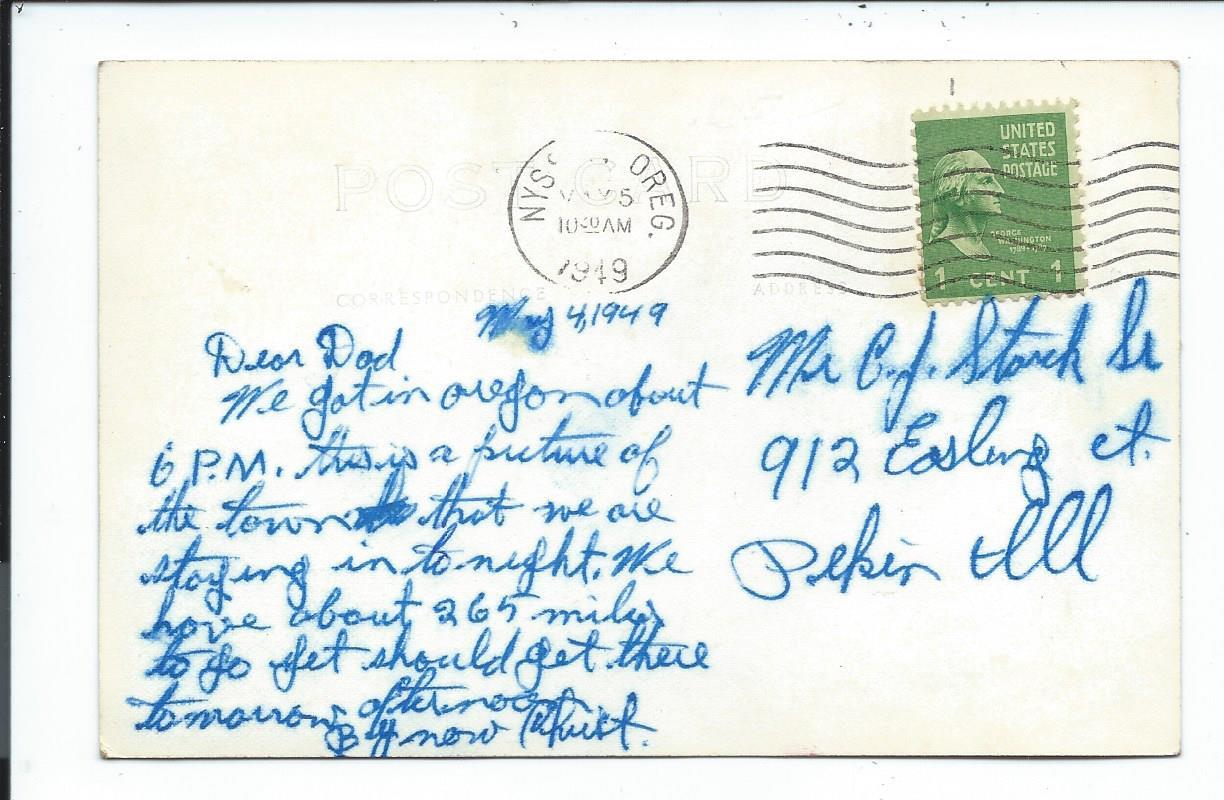 POST CARD
NYSS OREG.
MAY 5
10 30 AM
1949
UNITED
STATES
POSTAGE
GEORGE
WASHINGTON
1789-1797
1 CENT 1
CORRESPONDENCE
ADDRESS
May 4, 1949
Dear Dad
We got in oregon about
6 P.M. this is a picture of
the town that we are
staying in to night. We
have about 265 miles
to go yet should get there
tomorrow afternoon.
By now
Mr C. J. Stark Sr
912 Easling ct.
Pekin Ill